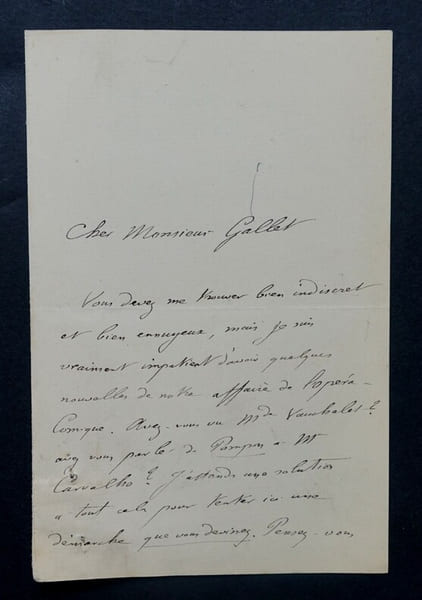 Cher Monsieur Gallet
Vous devez me trouver bien indiscret
et bien ennuyeux, mais je suis
vraiment impatient d'avoir quelques
nouvelles de notre affaire de l'opéra-
Comique. Avez-vous vu Mde Vauchelet?
avez vous parlé de Pompon à Mr
Carvalho? J'attends une solution
à tout cela pour tenter ici une
démarche que vous devinez. Pensez-vous